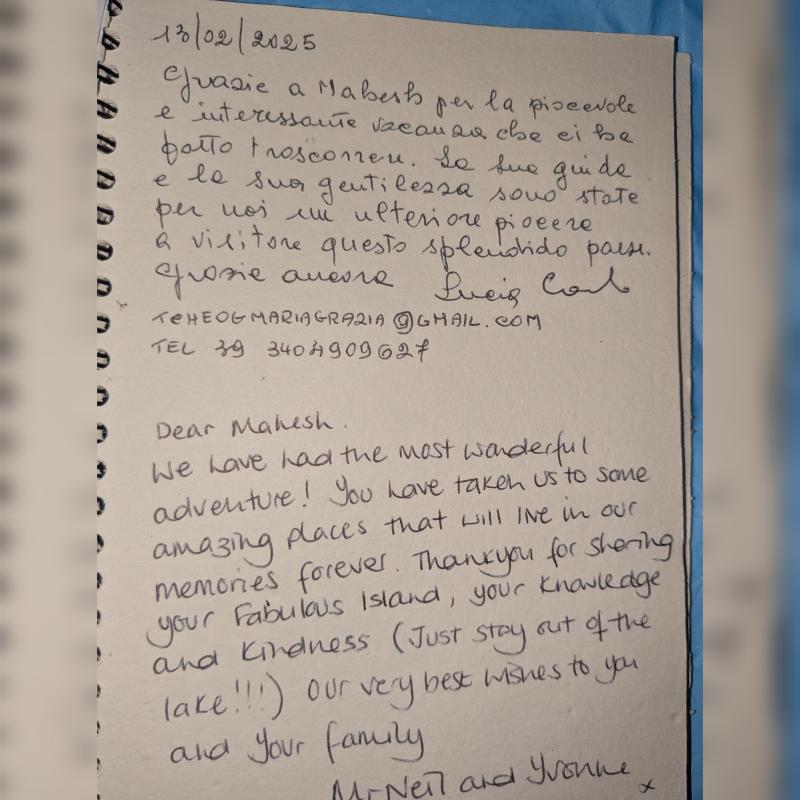 13/02/2025
Grazie a Mahesh per la piacevole
e interessante vacanza che ci ha
fatto trascorrere. La sua guida
e la sua gentilezza sono state
per noi un ulteriore piacere
a visitare questo splendido paese.
Grazie ancora Lucia
@GMAIL.COM
TEL 39
Dear Mahesh.
We have had the most wonderful
adventure! You have taken us to some
amazing places that will live in our
memories forever. Thankyou for sharing
your Fabulous island, your knowledge
and kindness (Just stay out of the
lake!!!) Our very best wishes to you
and your family
Mr Neil and Yvonne x